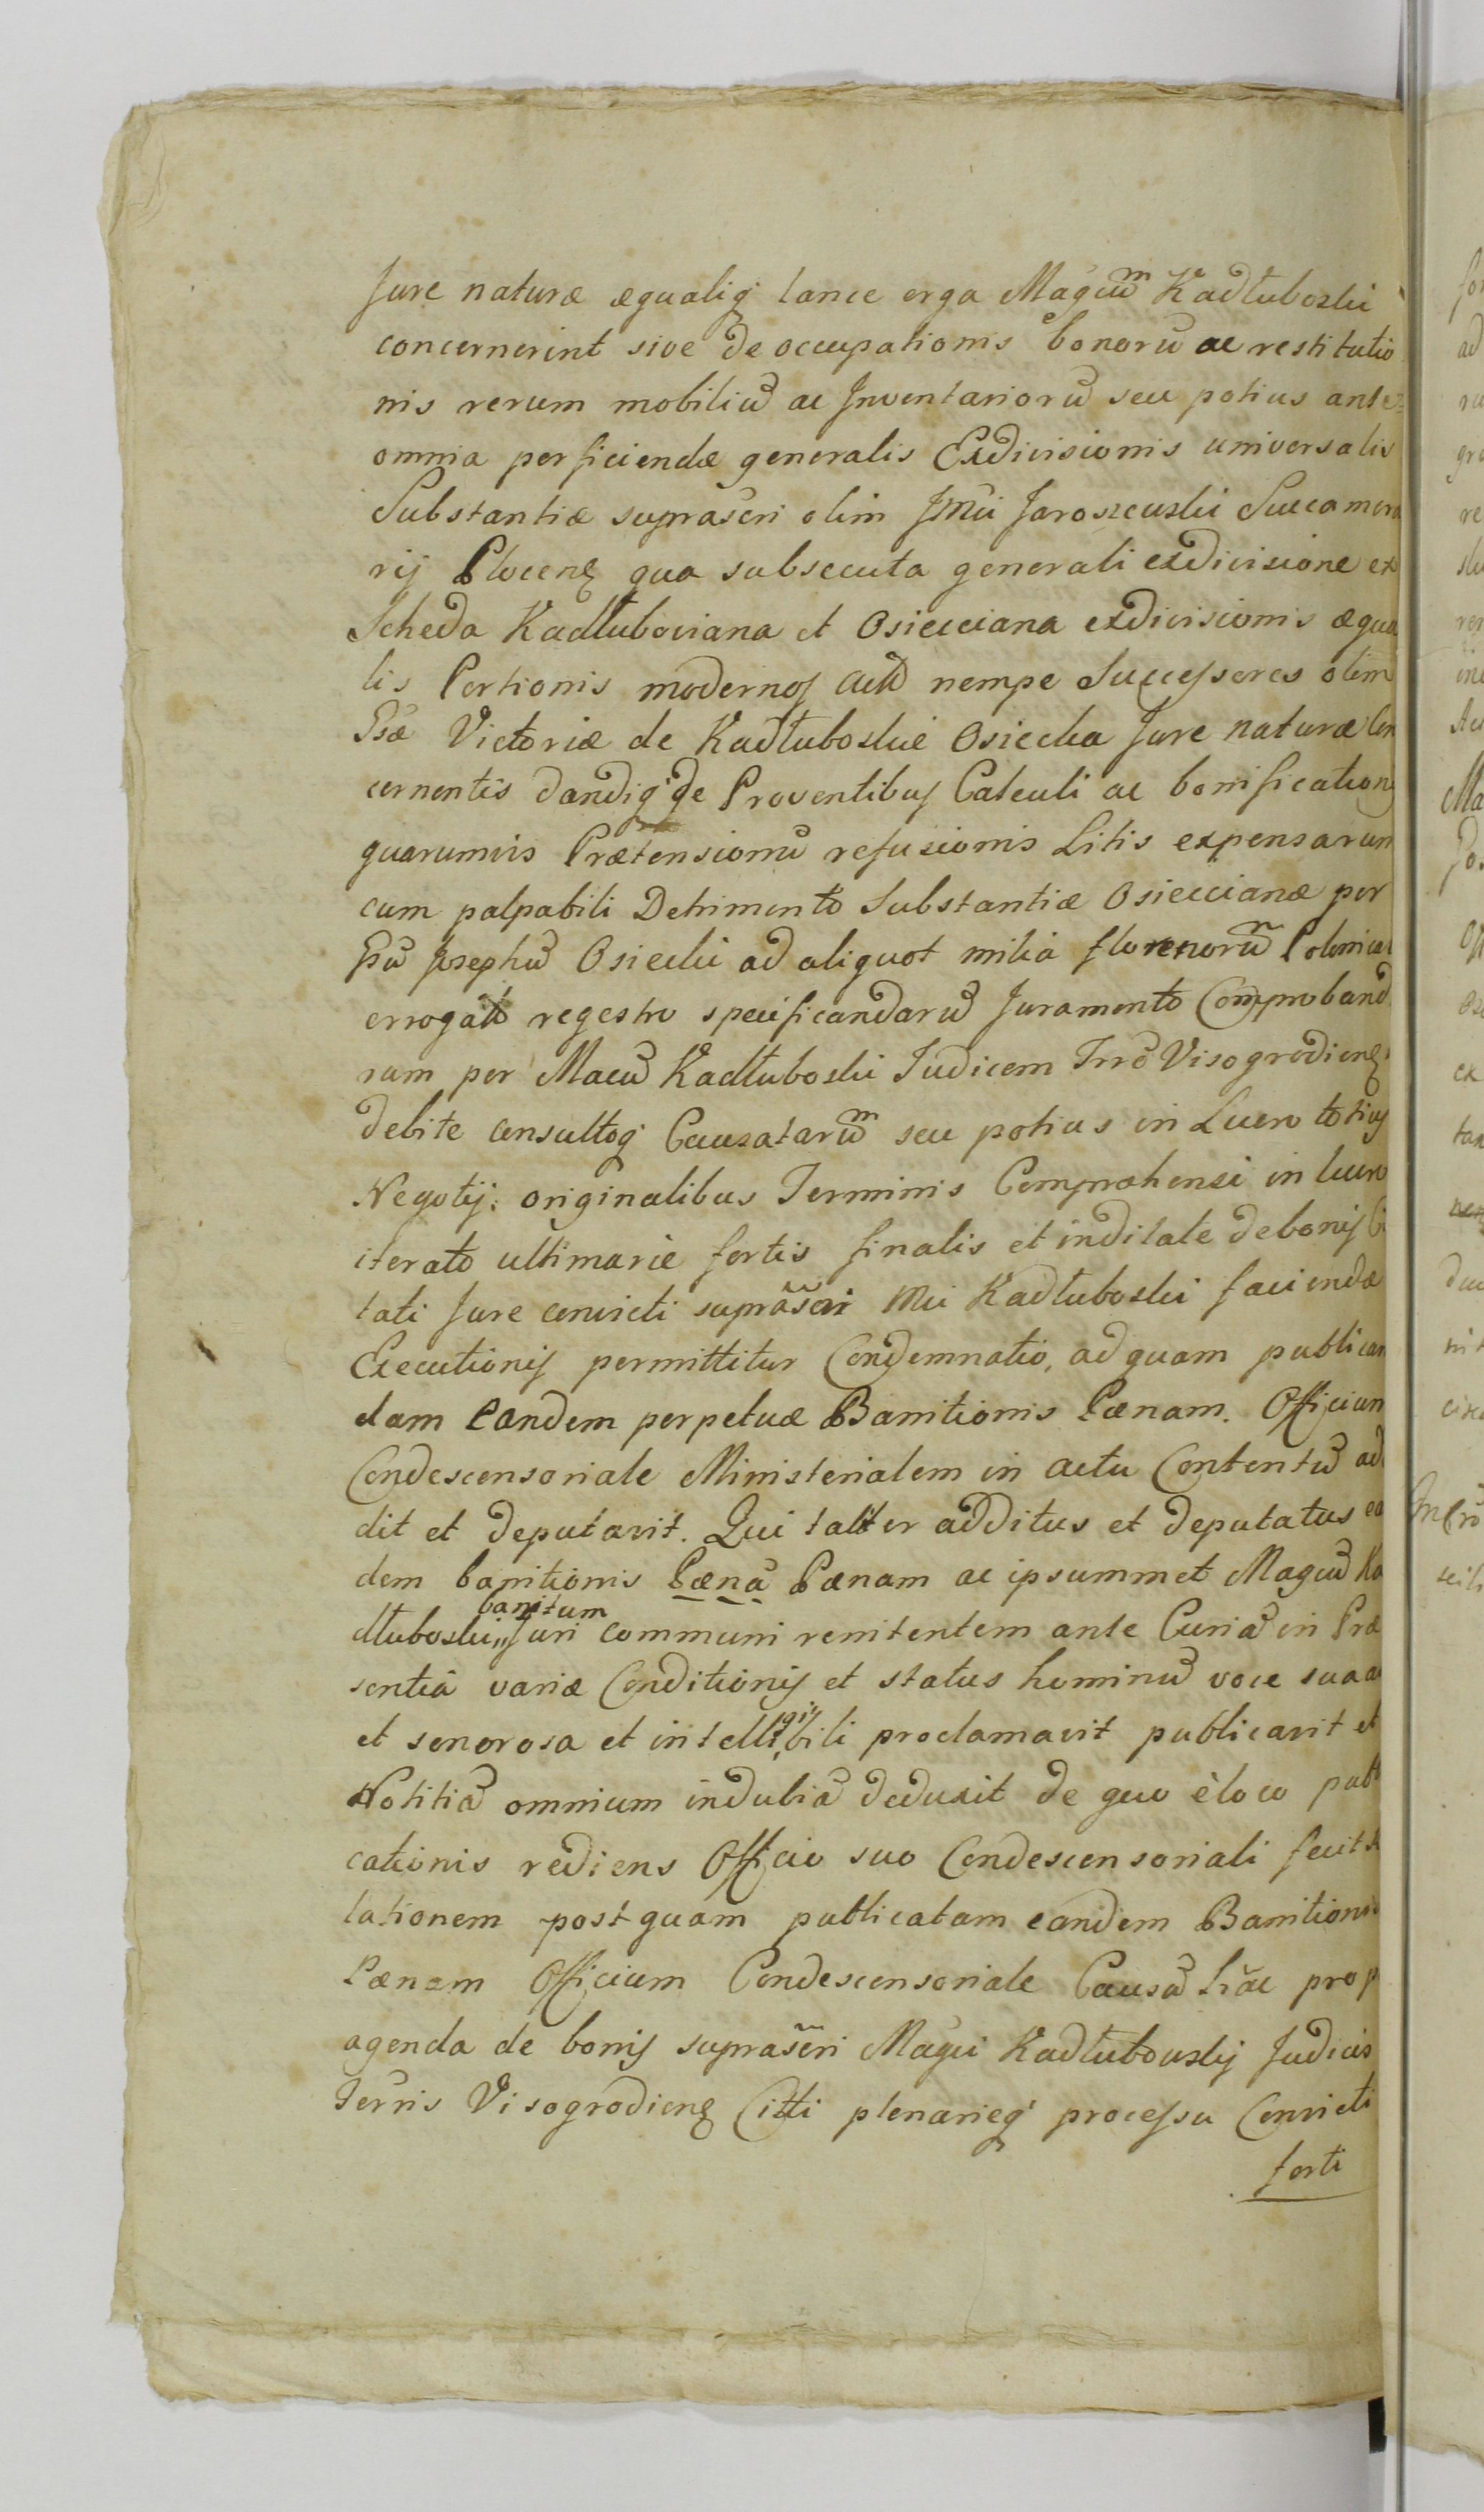 Jure naturæ æqualiq́ lance erga Magcum̃ Kadłuboski
concernerint sive de occupationis bonorũ ac restitutio
nis rerum mobiliũ ac Inventariorũ seu potius ante
omnia perficiendæ generalis Exdivisionis universalis
Substantiæ suprascri olim JMci Jaroszewski Succamera
rij Plocenę qua subsecuta generali exdivisione ex
Scheda Kadłuboviana et Osiecciana exdivisionis æqua
lis Portionis modernos nempe Successores olim
Gsæ Victoriæ de Kadłuboskie Osiecka Jure naturæ Con
cernentis dandiq́ de Proventibus Calculi ac bonification
quarumvis Prætensionũ refusionis Litis expensarum
cum palpabili Detrimento Substantiæ Osieccianæ per
Gsũ Josephũ Osiecki ad aliquot milia florenorũ Polonical
errogatt regestro specificandarũ Juramento Comproband
ram per Macũ Kadłuboski Judicem Trrõ Visogrodienę
debite consultoq́ Causatarum̃ seu potius in Lucro totius
Negotij: originalibus Terminis Compræhensi in lucro
iterato ultimarie fortis finalis et inditate debonis
tati Jure convicti suprascri Mci Kadłuboski faciendæ
Executionis permittitur Condemnatio, ad quam publican
dam eandem perpetuæ Banitionis Pænam. Officium
Condescensoriale Ministerialem in actu Contentũ ad
dit et deputavit. Qui taliter additus et deputatus ea
dem banitionis Pænã Pænam ac ipsummet Magcũ Ka
dłuboski,, banitum Juri communi renitentem ante Curiã in Præ
sentia variæ Conditionis et status hominũ voce sua a
et sonorosa et intelligibili proclamavit publicavit et
Notitiã omnium indubiã deduxit de quo è loco publ
cationis rediens Officio suo Condescensoriali fecit
lationem post quam publicatam eandem Banitionis
Pænam Officium Condescensoriale Causã hãc prop
agenda de bonis suprascri Magci Kadłubowskij Judicis
Terris Visogrodienę Citti plenarieq́ processu Convicti
forti